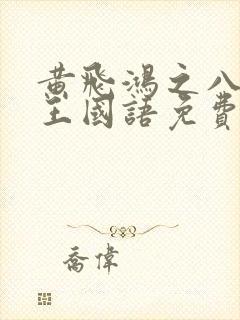 黄飛鴻之八
王國語免費
喬偉